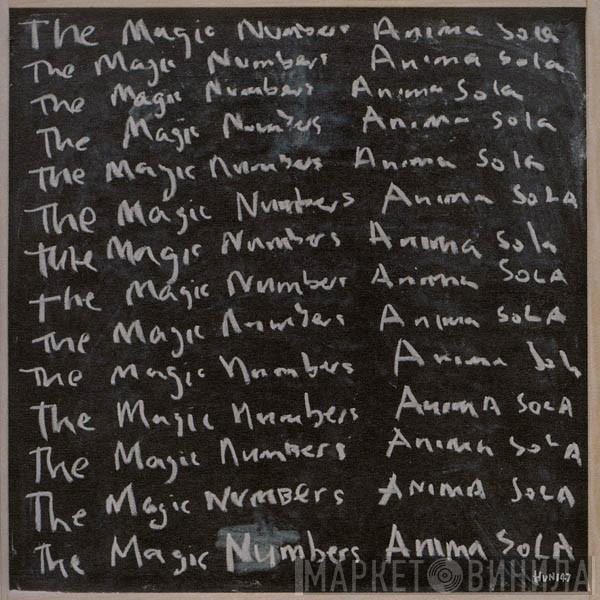 The Magic Numbers Anima Sola
The Magic Numbers Anima Sola
The Magic Numbers Anima Sola
The Magic Numbers Anima Sola
The Magic Numbers Anima Sola
The Magic Numbers Anima SoLA
The Magic Numbers Anima Sola
The Magic Numbers Anima SoLA
The Magic Numbers Anima SoLA
The Magic Numbers Anima Sola
The Magic Numbers AnimA SoLA
The Magic Numbers Anima SoLA
The Magic NUMBErs AnimA SoLA
The Magic Numbers Anima SoLA
HVN147
МАРКЕТ ВИНИЛА